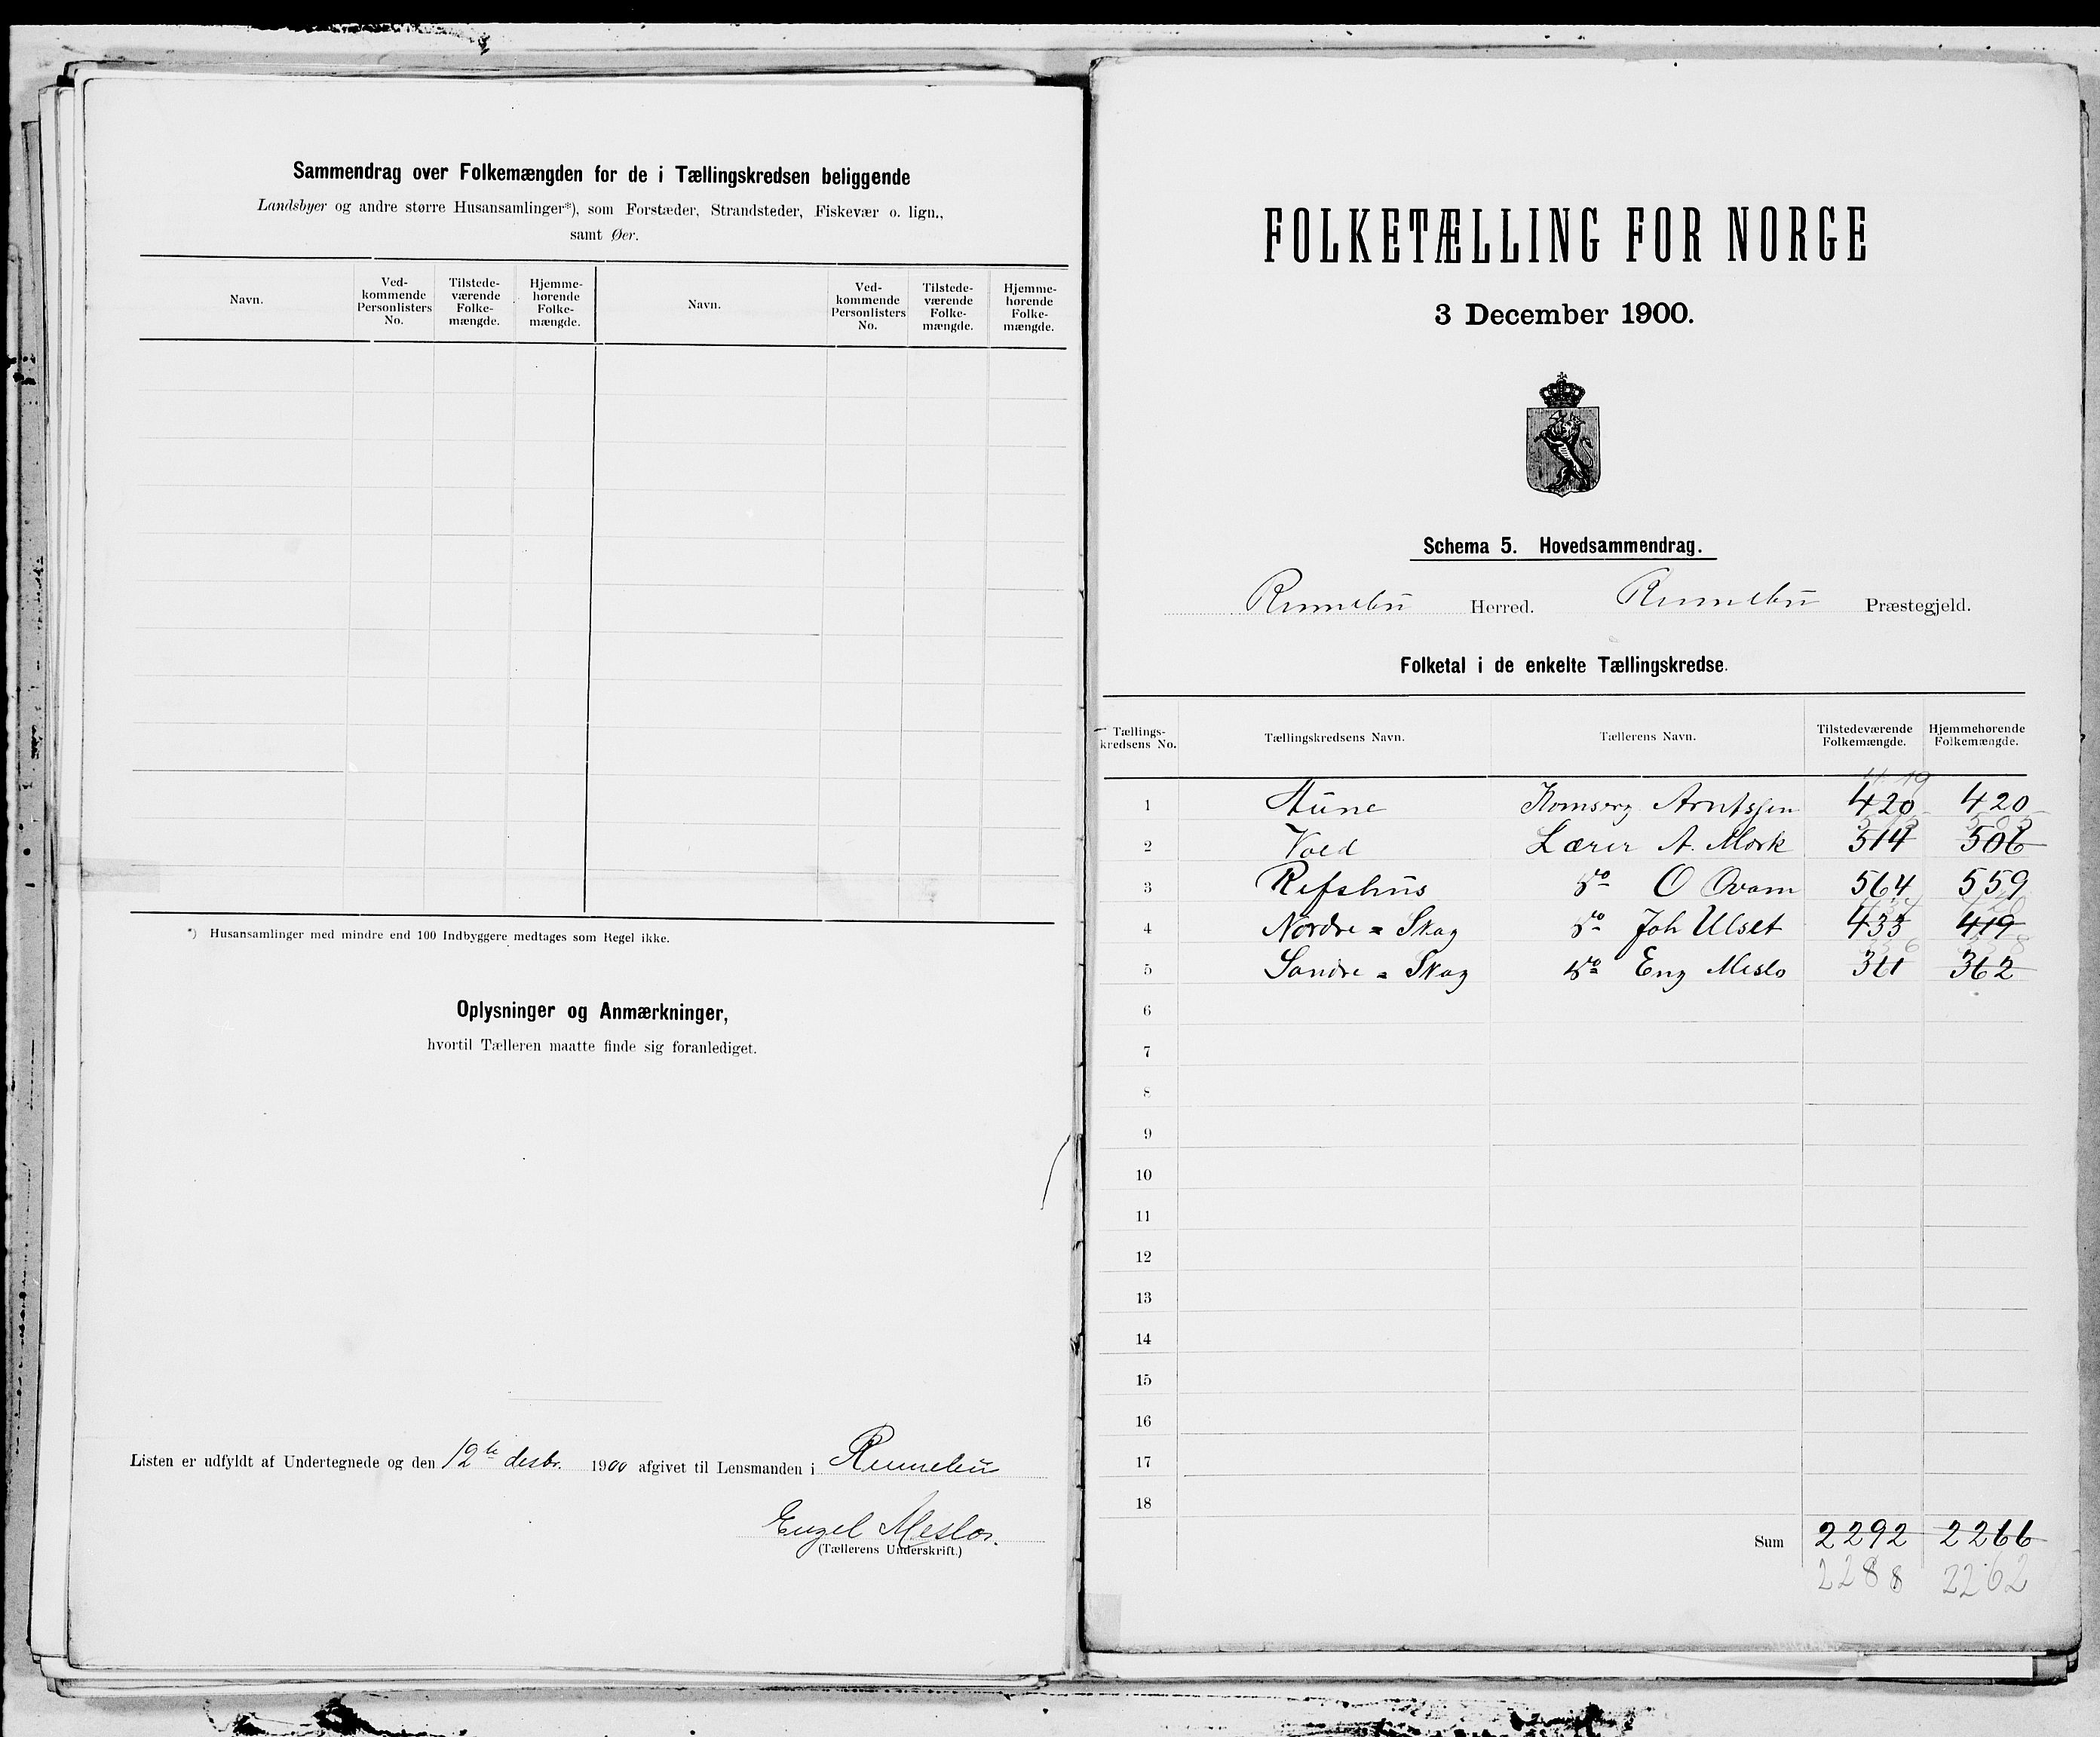 Sammendrag over Folkemængden for de i Tællingskredsen beliggende
Landsbyer og andre større Husansamlinger*), som Forstæder, Strandsteder, Fiskevær o. lign.,
samt Øer.
Navn.
Ved-
kommende
Personlisters
No.
Tilstede-
værende
Folke-
mængde.
Hjemme-
hørende
Folke-
mængde.
Navn.
Ved-
kommende
Personlisters
No.
Tilstede-
værende
Folke-
mængde.
Hjemme-
hørende
Folke-
mængde.
*) Husansamlinger med mindre end 100 Indbyggere medtages som Regel ikke.
Oplysninger og Anmærkninger,
hvortil Tælleren maatte finde sig foranlediget.
Listen er udfyldt af Undertegnede og den 12te desbr. 1900 afgivet til Lensmanden i Rennebu
Engel Meslo.
(Tællerens Underskrift.)
FOLKETÆLLING FOR NORGE
3 December 1900.
Schema 5. Hovedsammendrag.
Rennebu Herred. Rennebu Præstegjeld.
Folketal i de enkelte Tællingskredse.
Tællings-
kredsens No.
Tællingskredsens Navn.
Tællerens Navn.
Tilstedeværende
Folkemængde.
Hjemmehørende
Folkemængde.
1 Aune Arntsen 420 420
2 Vold Lærer A. Mork 514 506
3 Refshus do O Qvam 564 559
4 Nordre = Skog do Joh Ulset 433 419
5 Søndre = Skog do Eng Meslo 361 362
6
7
8
9
10
11
12
13
14
15
16
17
18
Sum 2292 2266
2288 2262